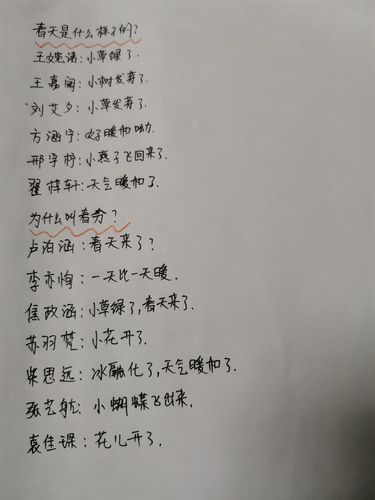 春天是什么样子的?
王婉诺:小草绿了.
王嘉阑:小树发芽了.
刘艾夕:小草发芽了.
方涵宁:好暖和呦.
邢宇柠:小燕子飞回来了.
翟梓轩:天气暖和了.
为什么叫春分?
卢泊涵:春天来了?
李亦恂:一天比一天暖.
焦政涵:小草绿了,春天来了.
苏羽梵:小花开了.
柴思远:冰融化了,天气暖和了.
张艺航:小蝴蝶飞出来.
袁佳琛:花儿开了.